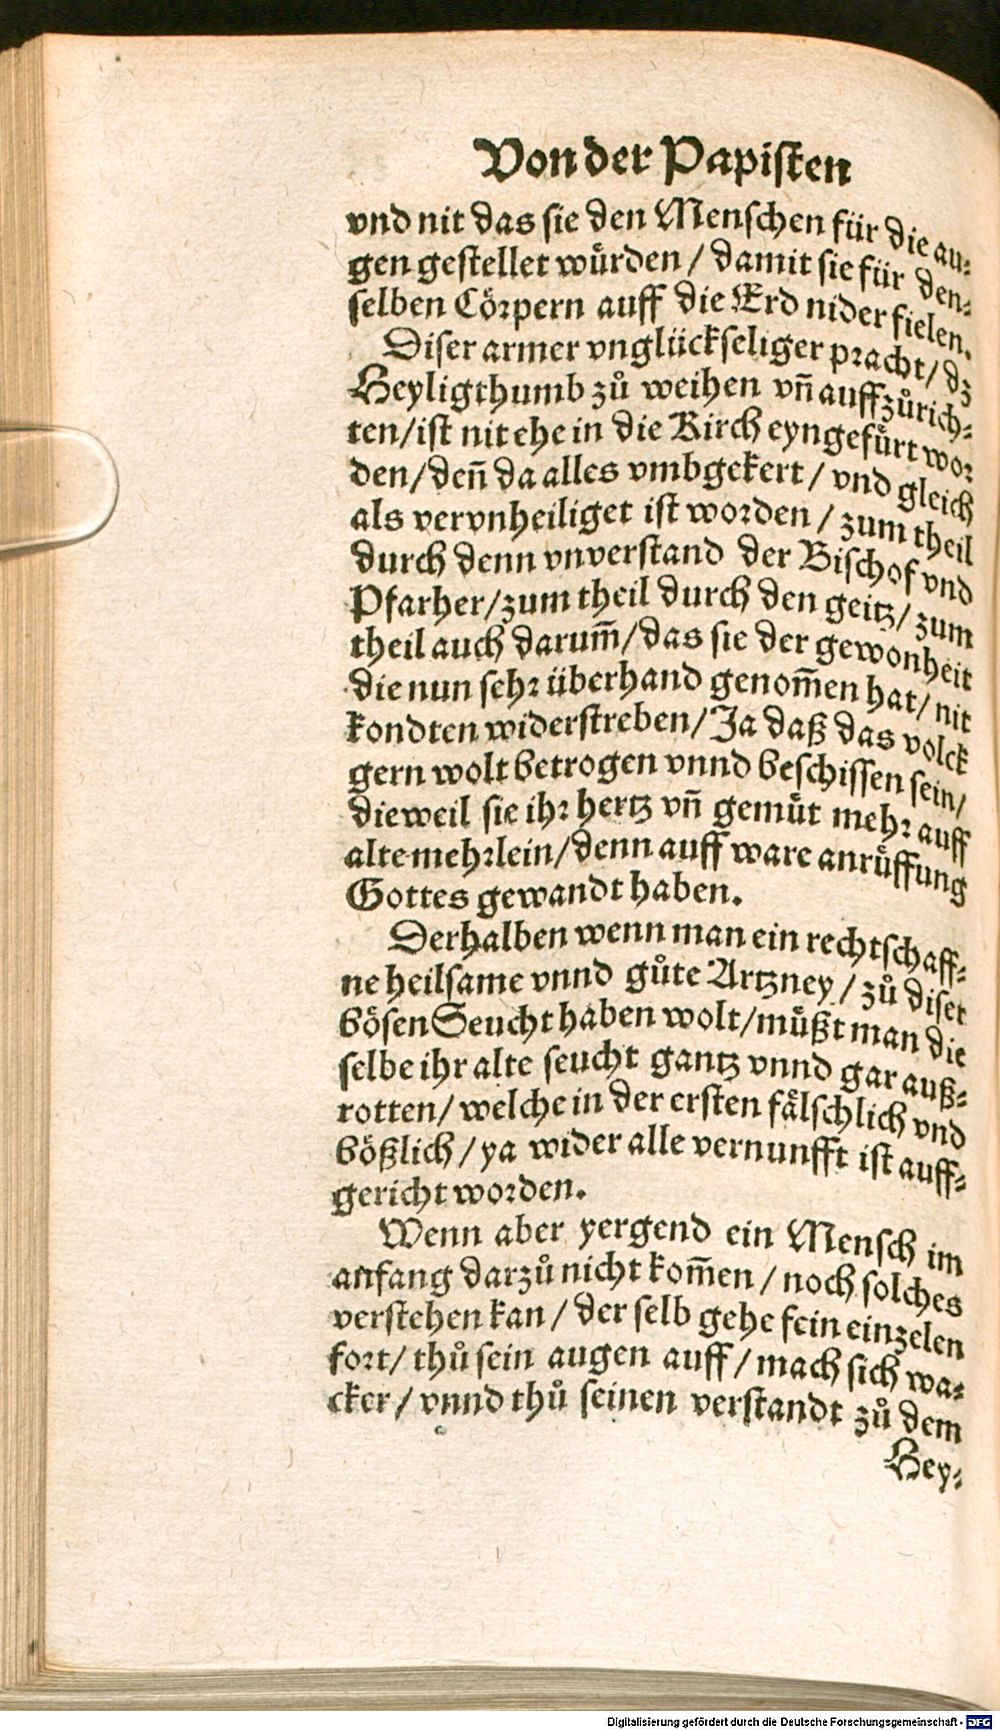 Von der Papisten
vnd nit das sie den Menschen für die au-
gen gestellet wuͤrden / damit sie für den-
selben Coͤrpern auff die Erd nider fielen.
Diser armer vnglückseliger pracht / dz
Heyligthumb zů weihen vñ auffzůrich-
ten / ist nit ehe in die Kirch eyngefuͤrt wor
den / deñ da alles vmbgekert / vnd gleich
als vervnheiliget ist worden / zum theil
durch denn vnverstand der Bischof vnd
Pfarher / zum theil durch den geitz / zum
theil auch darum̃ / das sie der gewonheit
die nun sehr überhand genom̃en hat / nit
kondten widerstreben / Ja daß das volck
gern wolt betrogen vnnd beschissen sein /
dieweil sie ihr hertz vñ gemuͤt mehr auff
alte mehrlein / denn auff ware anruͤffung
Gottes gewandt haben.
Derhalben wenn man ein rechtschaff-
ne heilsame vnnd gůte Artzney / zů diser
boͤsen Seucht haben wolt / muͤßt man die
selbe ihr alte seucht gantz vnnd gar auß-
rotten / welche in der ersten faͤlschlich vnd
boͤßlich / ya wider alle vernunfft ist auff-
gericht worden.
Wenn aber yergend ein Mensch im
anfang darzů nicht kom̃en / noch solches
verstehen kan / der selb gehe fein einzelen
fort / thů sein augen auff / mach sich wa-
cker / vnnd thů seinen verstandt zů dem
Hey-
Digitalisierung gefördert durch die Deutsche Forschungsgemeinschaft - DFG